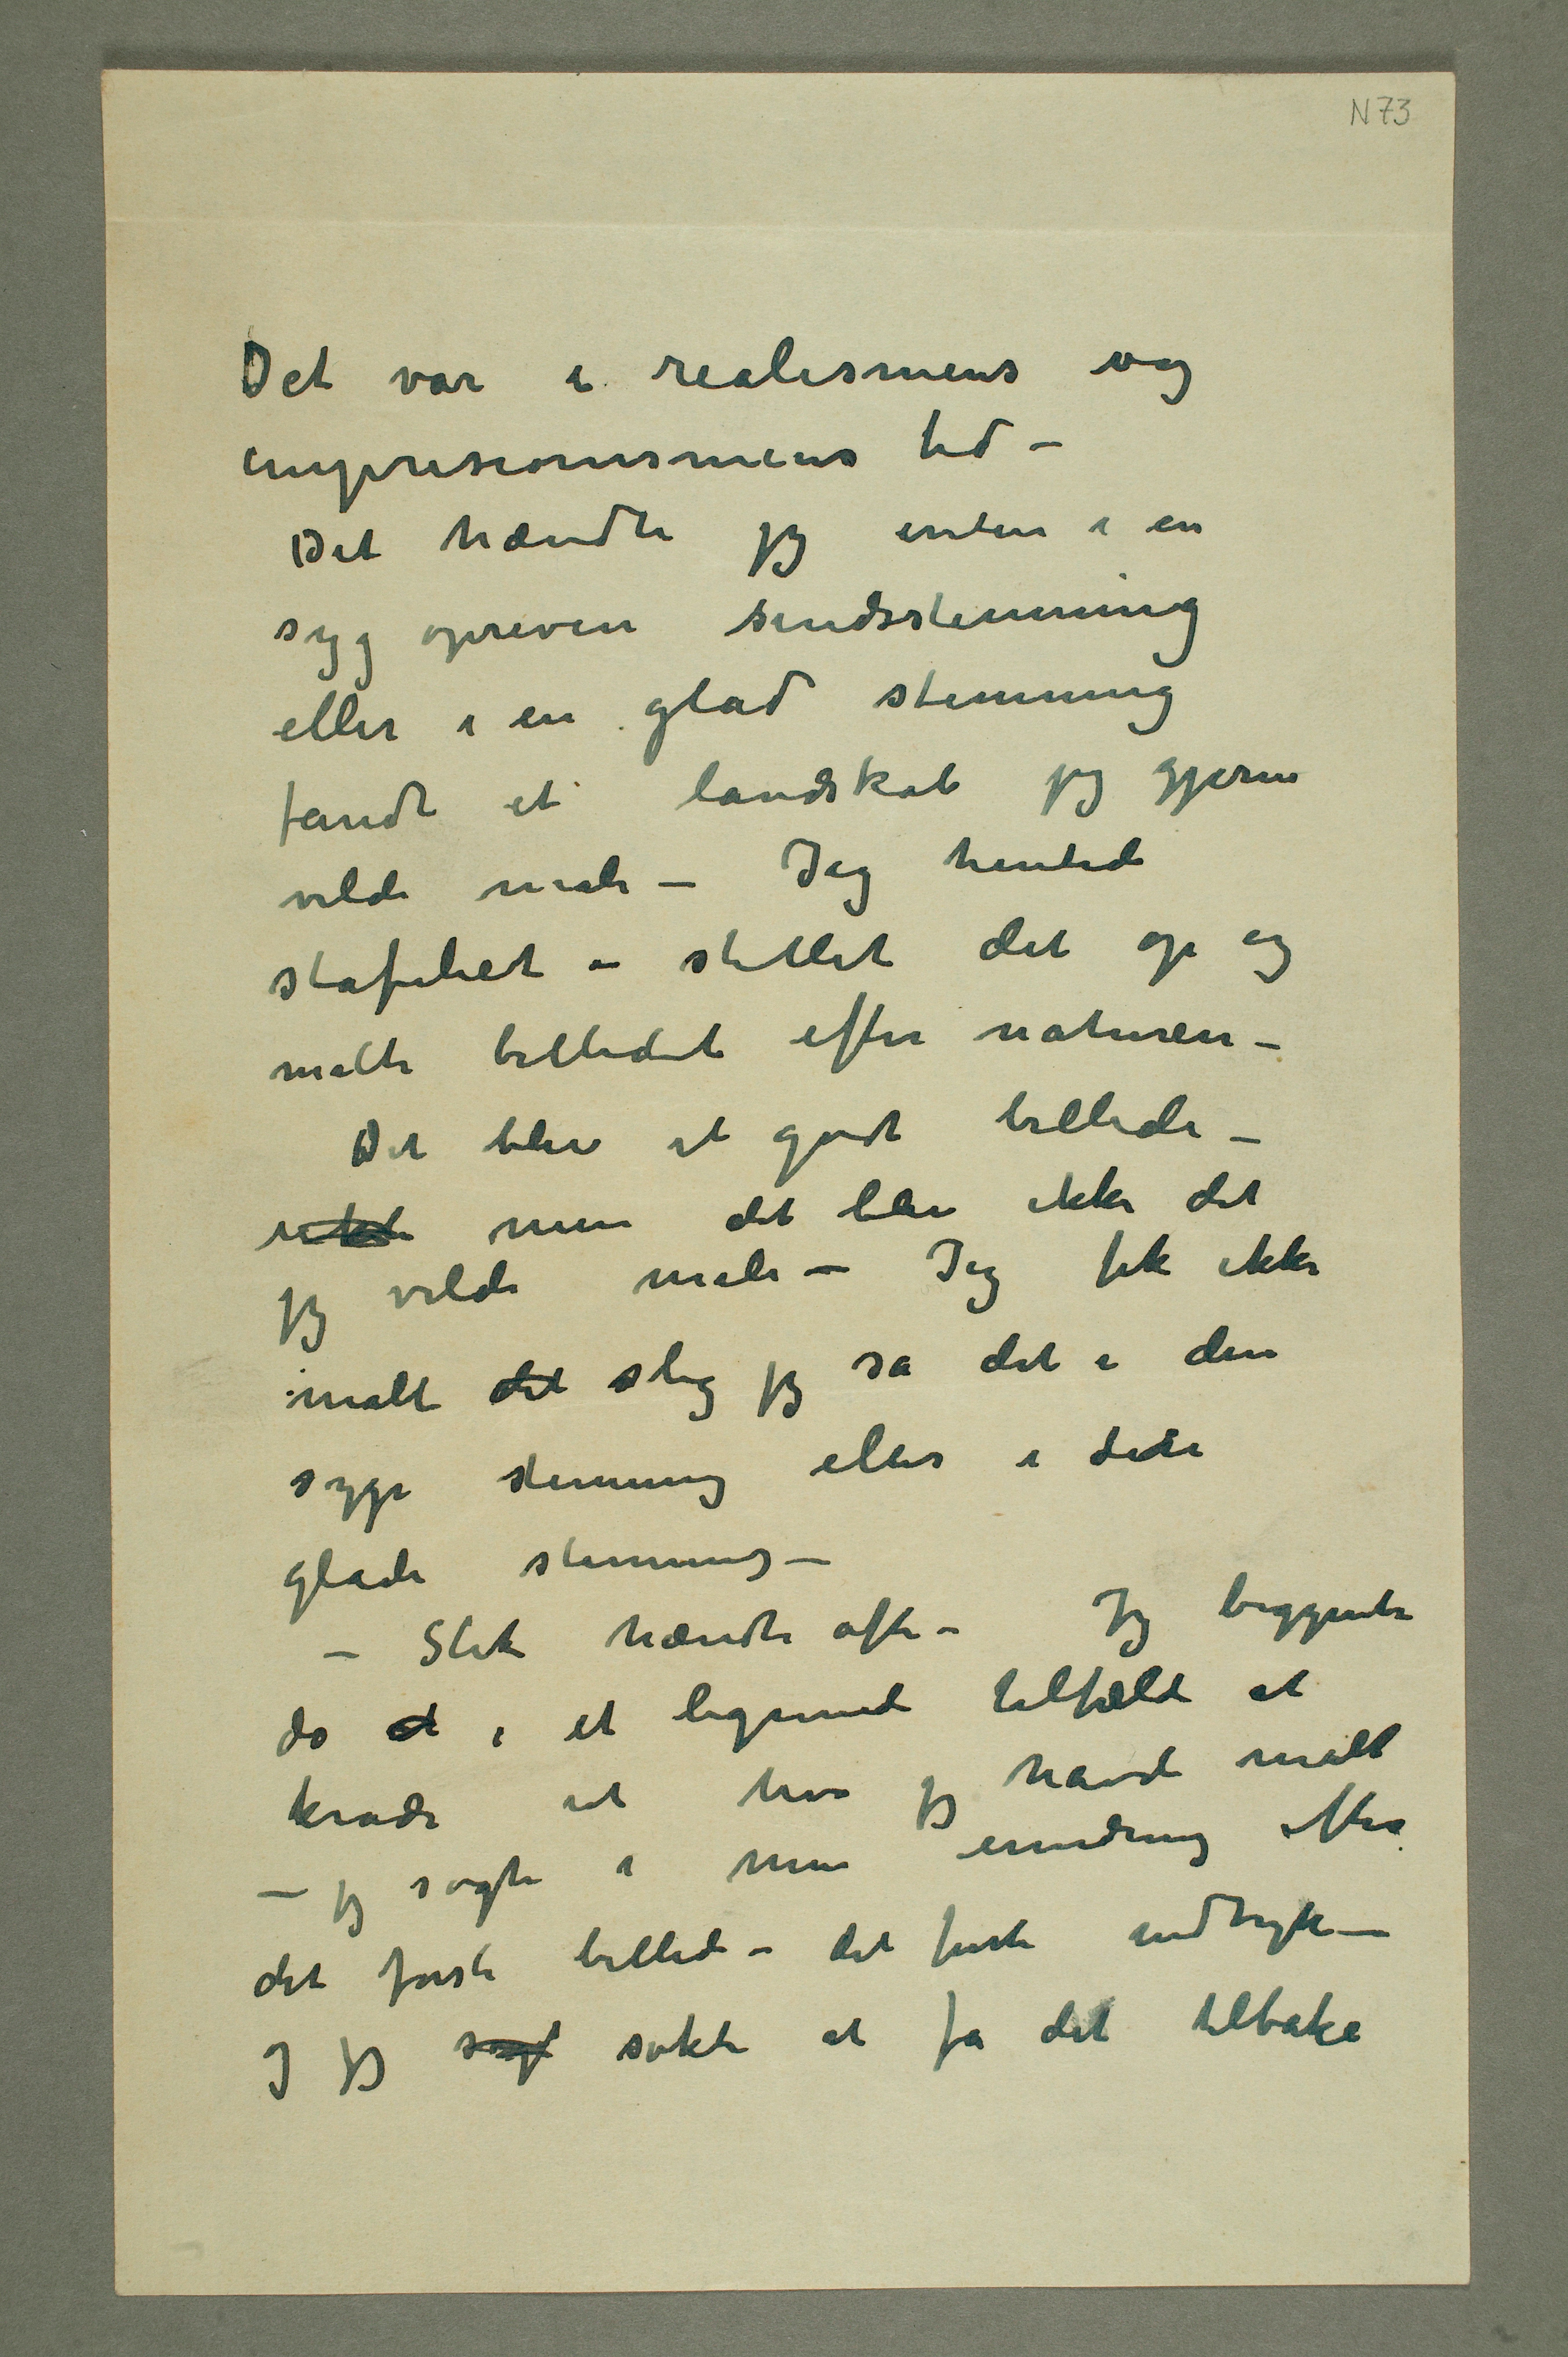 N 73
Det var i realismens og
impresionismens tid –
Det hændte jeg enten i en
syg opreven sindsstemning
eller i en glad stemning
fandt et landskab jeg gjerne
vilde male – Jeg hentede
stafeliet – stillet det op og
malte billedet efter naturen –
Det blev et godt billede –
men det blev ikke det
jeg vilde male – Jeg fik ikke
malt det slig jeg så det i den
syge stemning eller i den
glade stemning –
– Slik hændte ofte – Jeg begynte
da et i et lignende tilfælde at
krade ut hva jeg havde malt
– jeg søgte i min erindring efter
det første billede – det første indtryk –
I jeg søgt søkte at få det tilbake